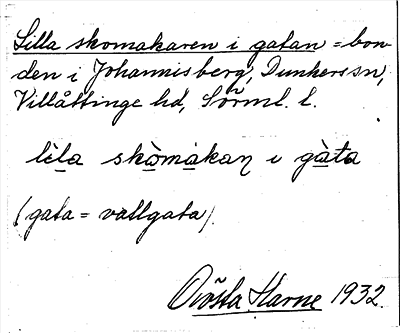 Lilla skomakaren i gatan = bon-
den i Johannisberg, Dunkers sn,
Villåttinge hd, Sörml. l.
lìla skòmakan i gàta
(gata = vallgata).
Harne 1932.